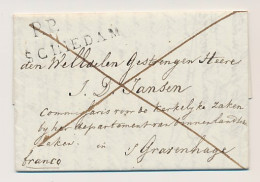 P.P.
SCHIEDAM
den Weledelen Gestrengen Heere
J. D. Jansen
Commissaris voor de kerkelijke zaken
bij het departement van binnenlandse
Zaken in
's Gravenhage
franco